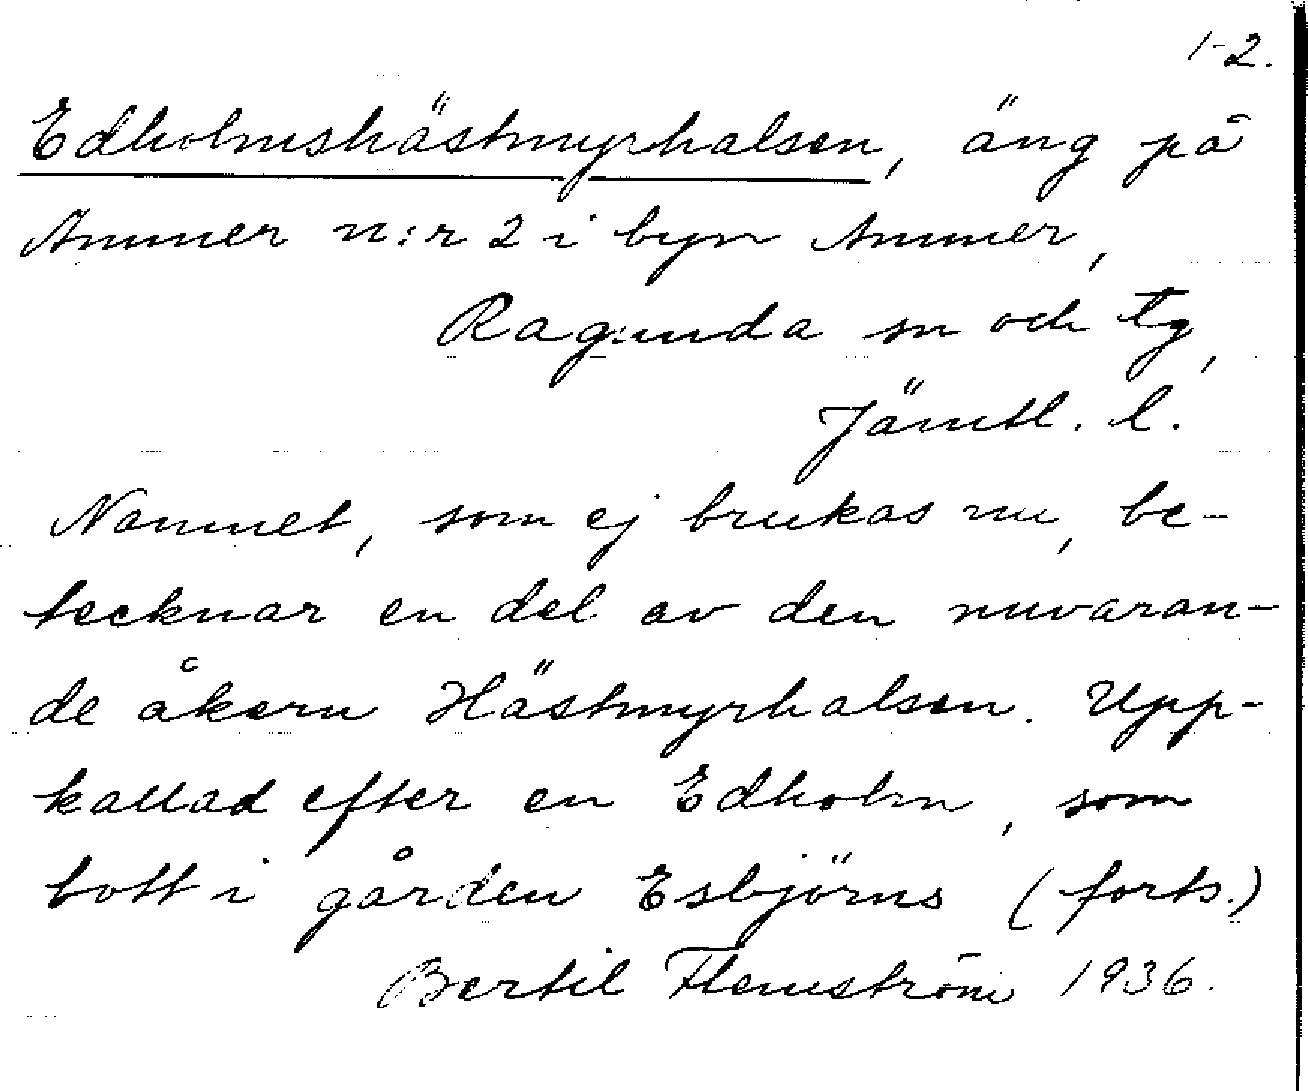 1-2.
Edholmshästmyrhalsen, äng på
Ammer n:r 2 i byn Ammer,
Ragunda sn och tg,
Jämtl. l.
Namnet, som ej brukas nu, be-
tecknar en del av den nuvaran-
de åkern Hästmyrhalsen. Upp-
kallad efter en Edholm, som
bott i gården Esbjörns (forts.)
Bertil Flemström 1936.